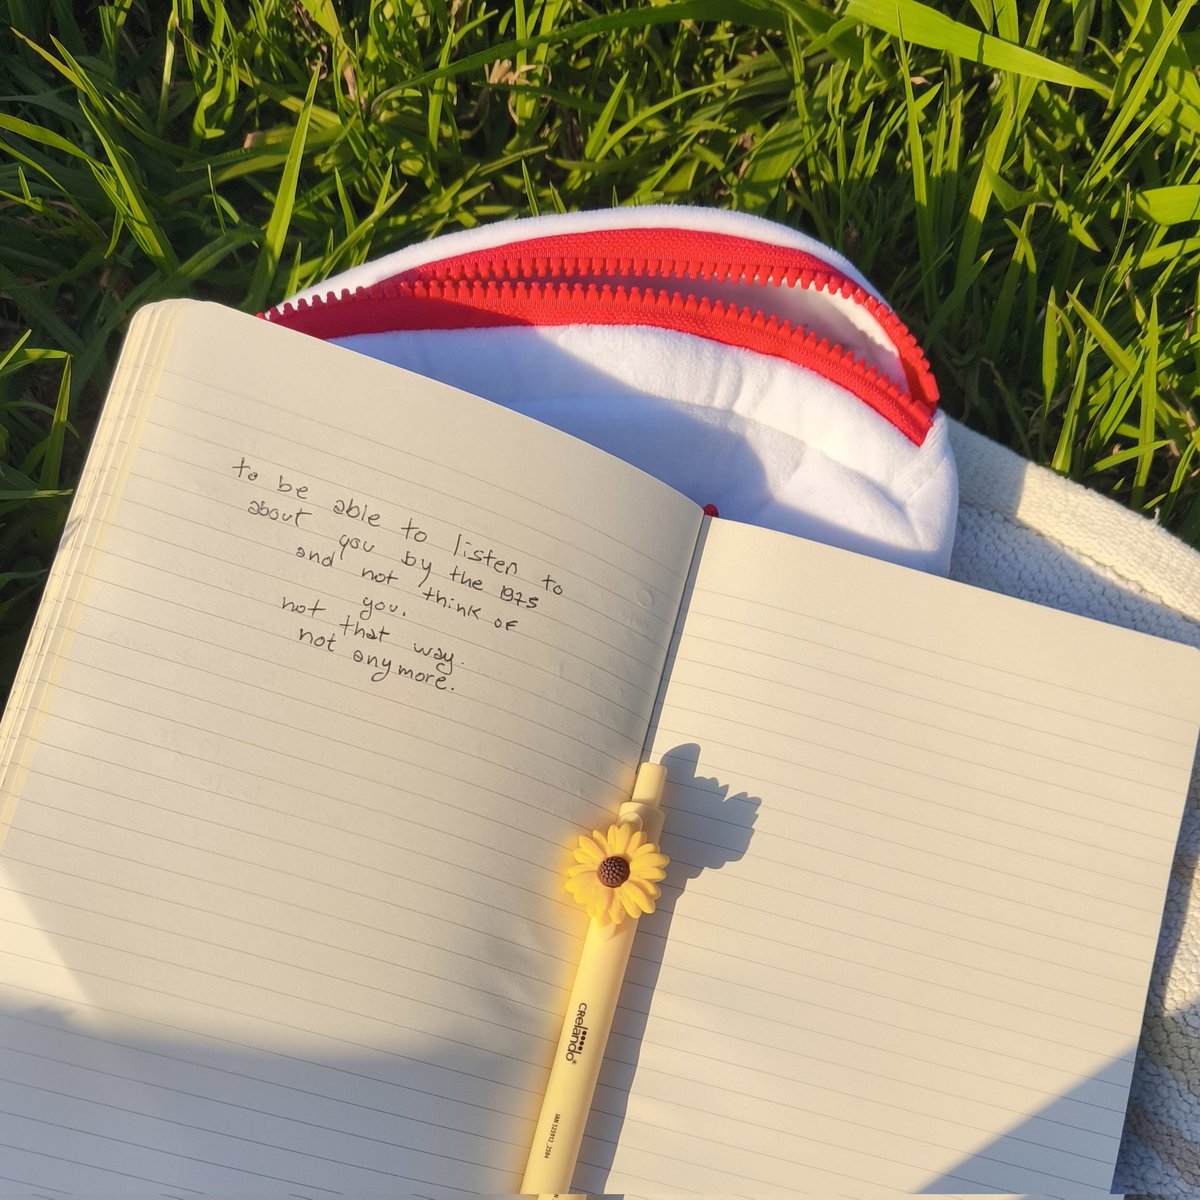 to be able to listen to
about you by the 1975
and not think of
you.
not that way.
not anymore.
crelando®
IAN 525912_2104